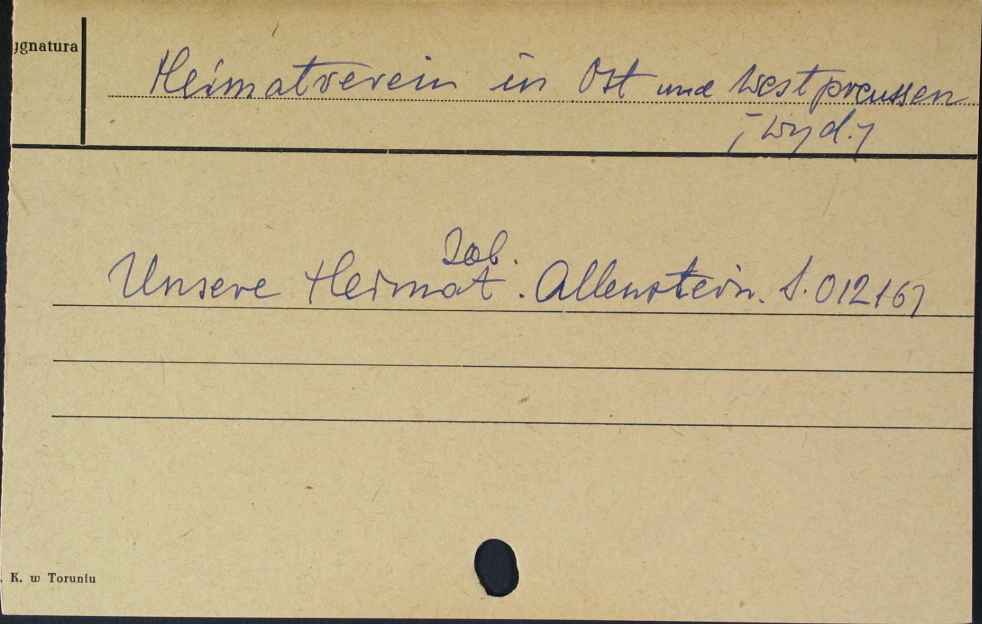 ygnatura
Heimatverein in Ost und Westpreussen
[wyd.]
Zob.
Unsere Heimat. Allenstein. S. 012167
. K. w Toruniu